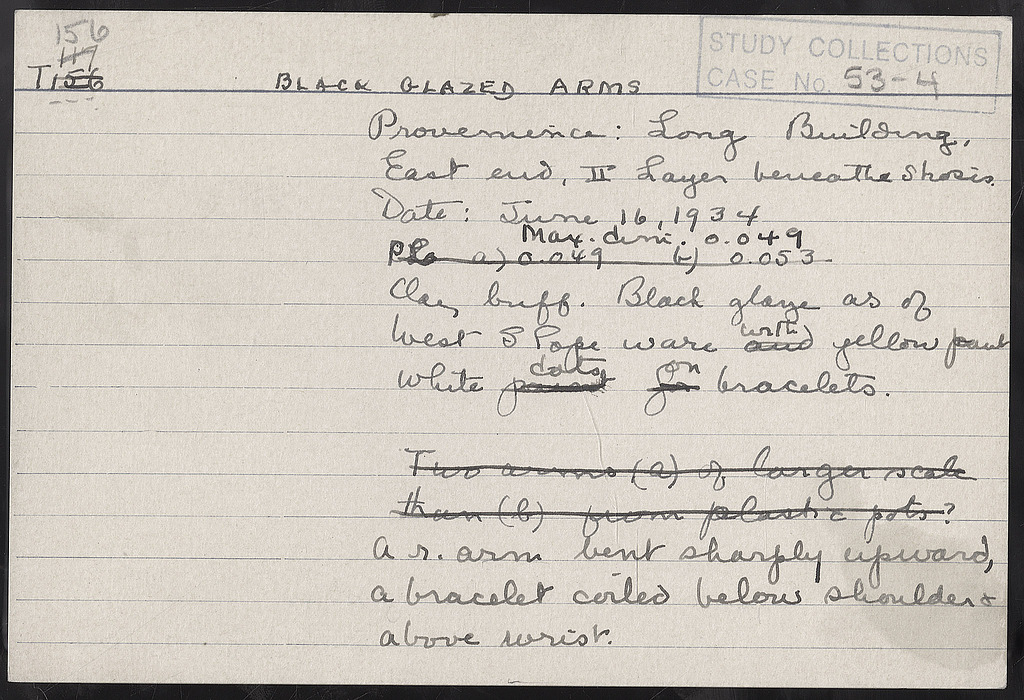 156
117
T156
STUDY COLLECTIONS
CASE No. 53-4
BLACK GLAZED ARMS
Provenience: Long Building,
East end, II Layer beneath
Date: June 16, 1934
Max. dim. 0.049
a) 0.049 b) 0.053
Clay buff. Black glaze as of
West Slope ware and with yellow paint
white paint dots, for on bracelets.
Two arms (a) of larger scale
than (b) from plastic pots?
A r. arm bent sharply upward,
a bracelet coiled below shoulder &
above wrist.